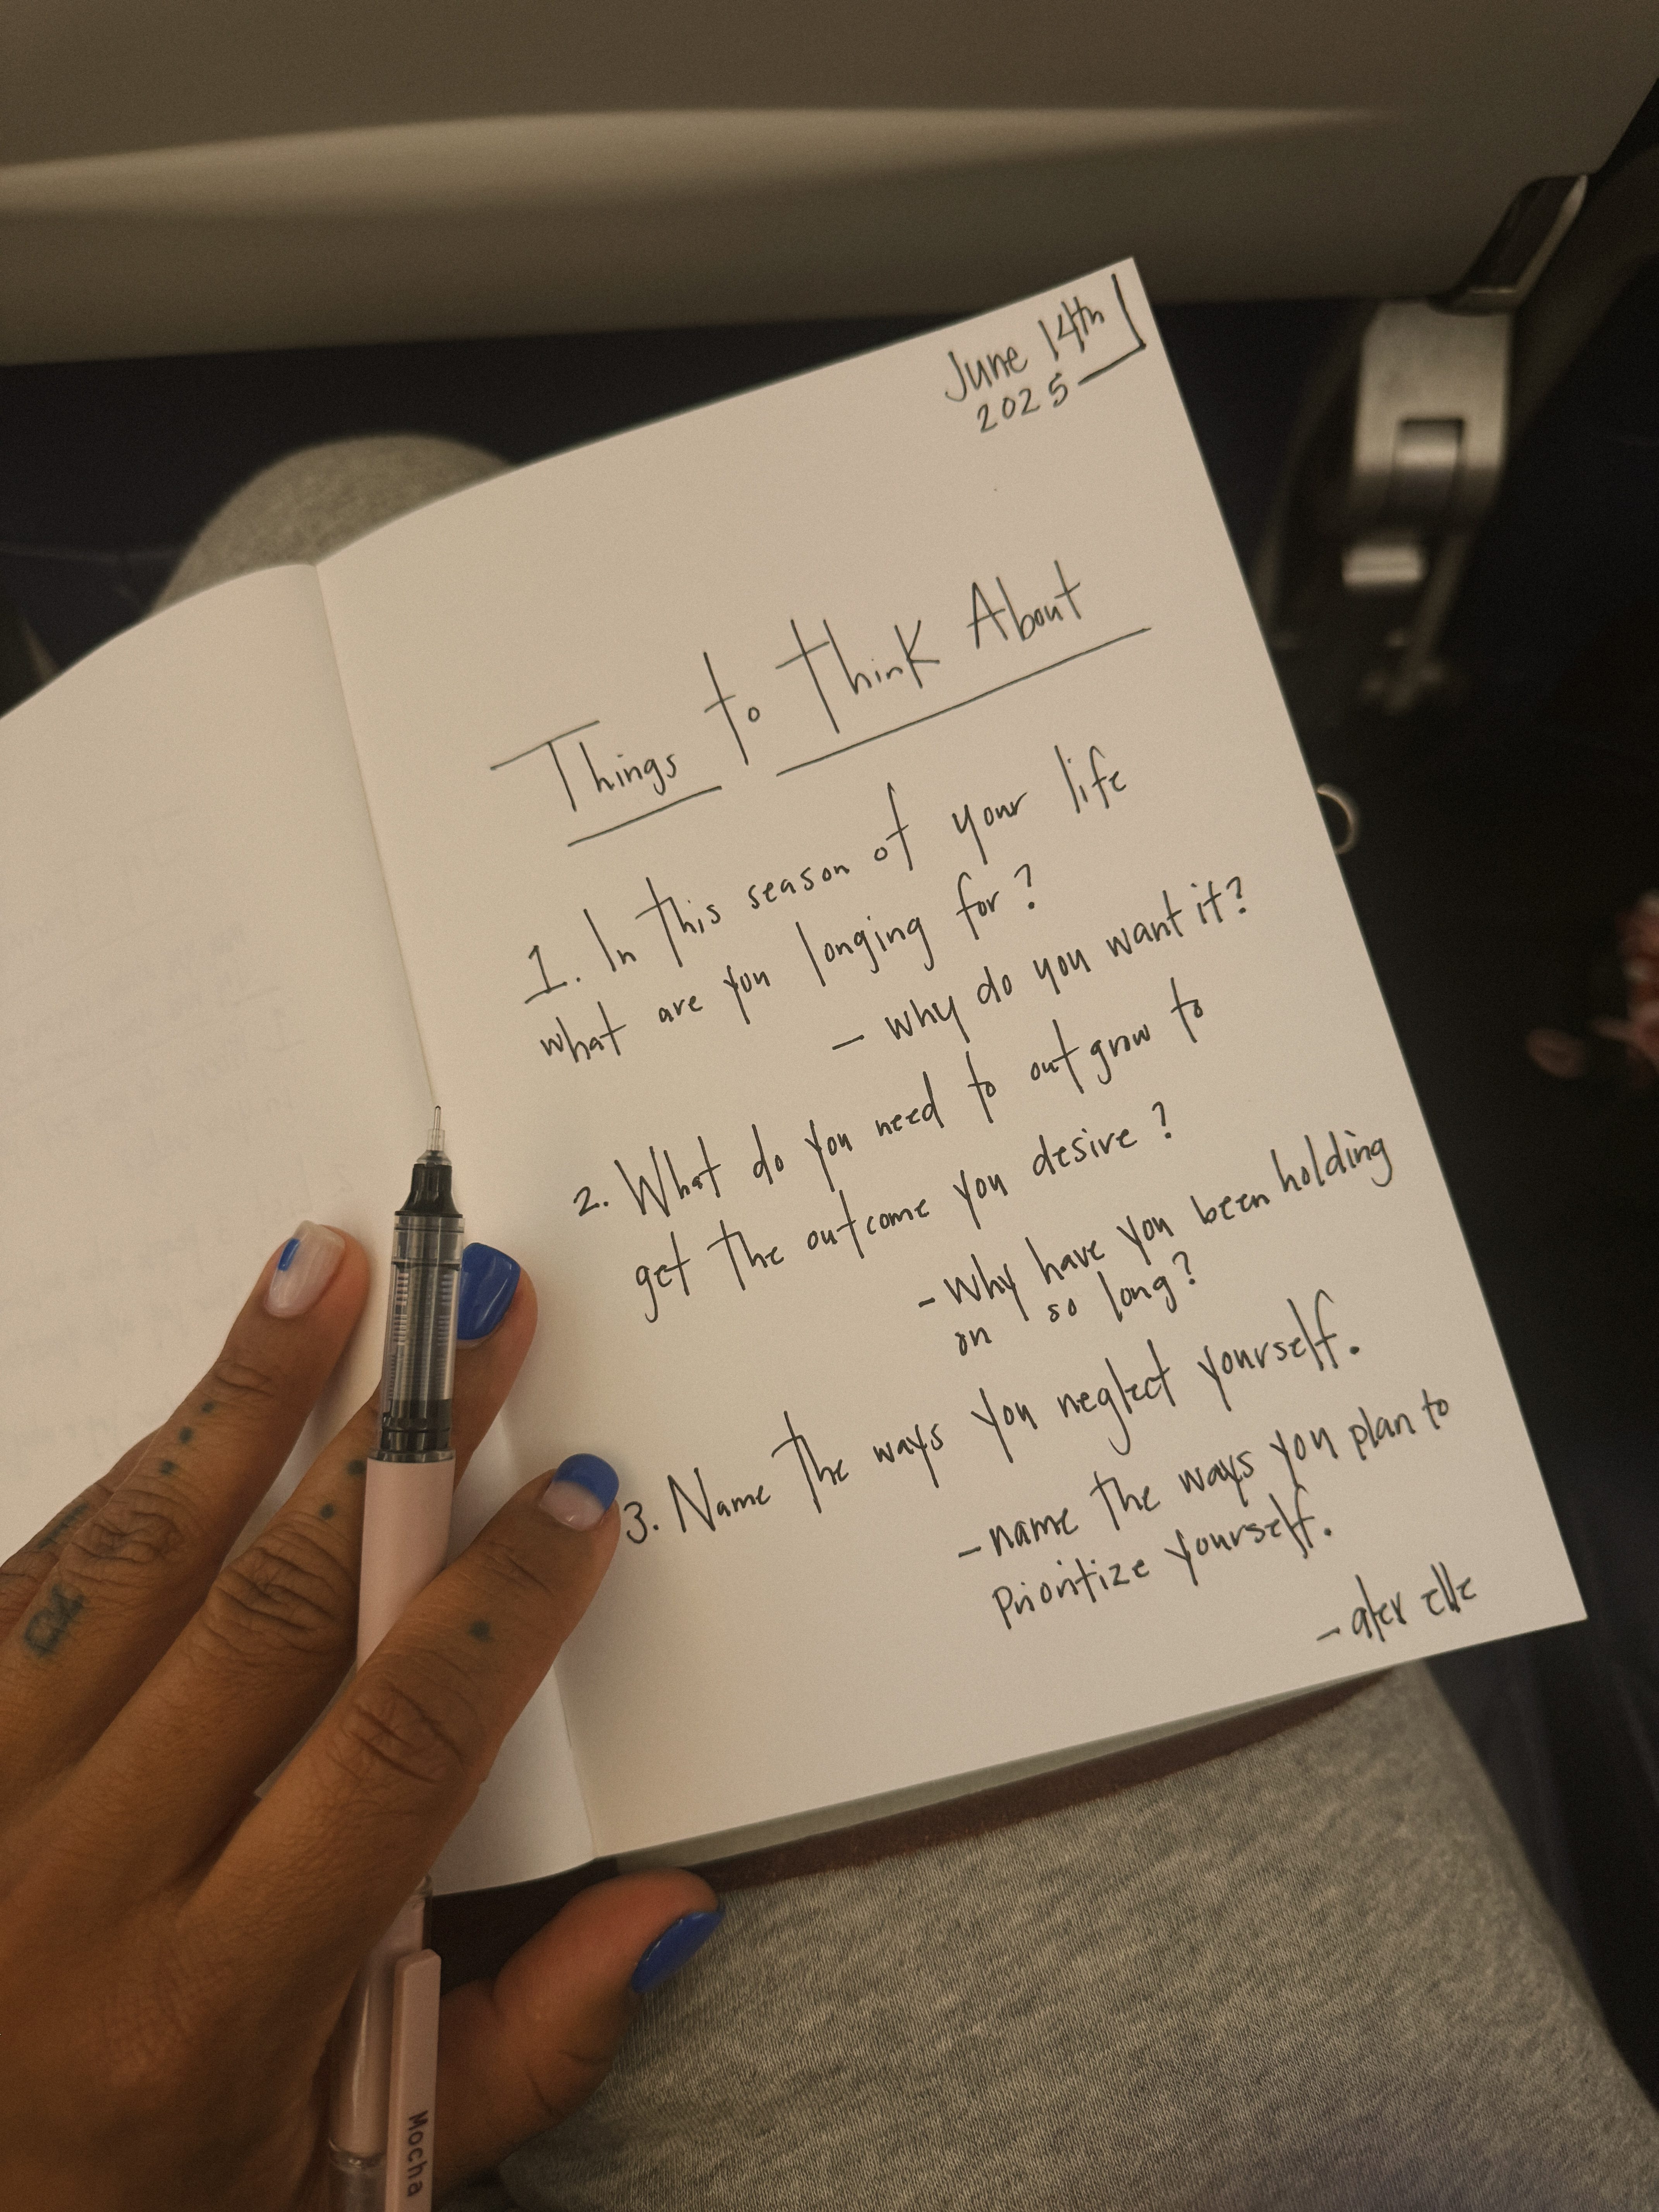 June 14th
2025
Things to think About
1. In this season of your life
what are you longing for?
- why do you want it?
2. What do you need to outgrow to
get the outcome you desire?
- Why have you been holding
on so long?
3. Name the ways you neglect yourself.
- name the ways you plan to
prioritize yourself.
- alex elle
Mocha